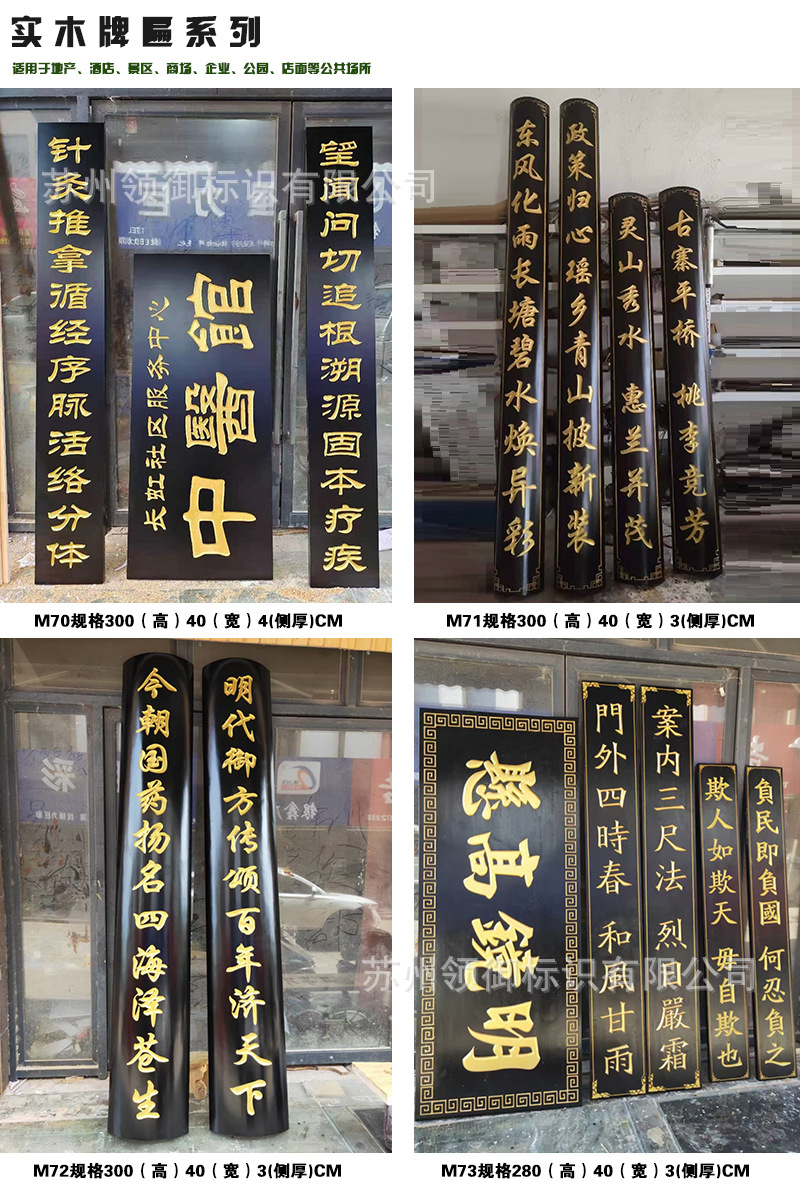 实木牌匾系列
适用于地产、酒店、景区、商场、企业、公园、店面等公共场所
针灸推拿循经序脉活络分体
长虹社区服务中心
中醫館
望聞问切追根溯源固本疗疾
苏州领御标识有限公司
东风化雨长塘碧水焕异彩
政策归心瑶乡青山披新装
灵山秀水 惠兰并茂
古寨平桥 桃李竞芳
M70规格300（高）40（宽）4(侧厚)CM
M71规格300（高）40（宽）3(侧厚)CM
今朝国药扬名四海泽苍生
明代御方传颂百年济天下
明鏡高懸
門外四時春 和風甘雨
案内三尺法 烈日嚴霜
欺人如欺天 毋自欺也
負民即負國 何忍負之
苏州领御标识有限公司
M72规格300（高）40（宽）3(侧厚)CM
M73规格280（高）40（宽）3(侧厚)CM